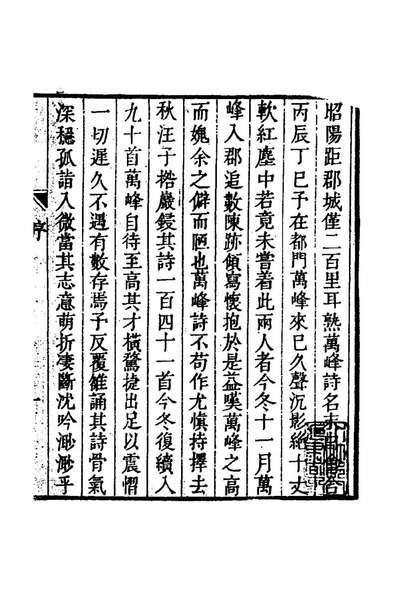 昭陽距郡城僅二百里耳熟萬峰詩名未
丙辰丁巳予在都門萬峰來已久聲沉影絕十丈
軟紅塵中若竟未嘗着此兩人者今冬十一月萬
峰入郡追數陳跡傾寫懷抱於是益嘆萬峰之高
而媿余之僻而陋也萬峰詩不苟作尤慎持擇去
秋汪子楷嚴鋟其詩一百四十一首今冬復續入
九十首萬峰自待至高其才橫騖捷出足以震慴
一切遲久不遇有數存焉予反覆雒誦其詩骨氣
深穩孤詣入微當其志意萌折凄斷沈吟渺渺乎
序
一